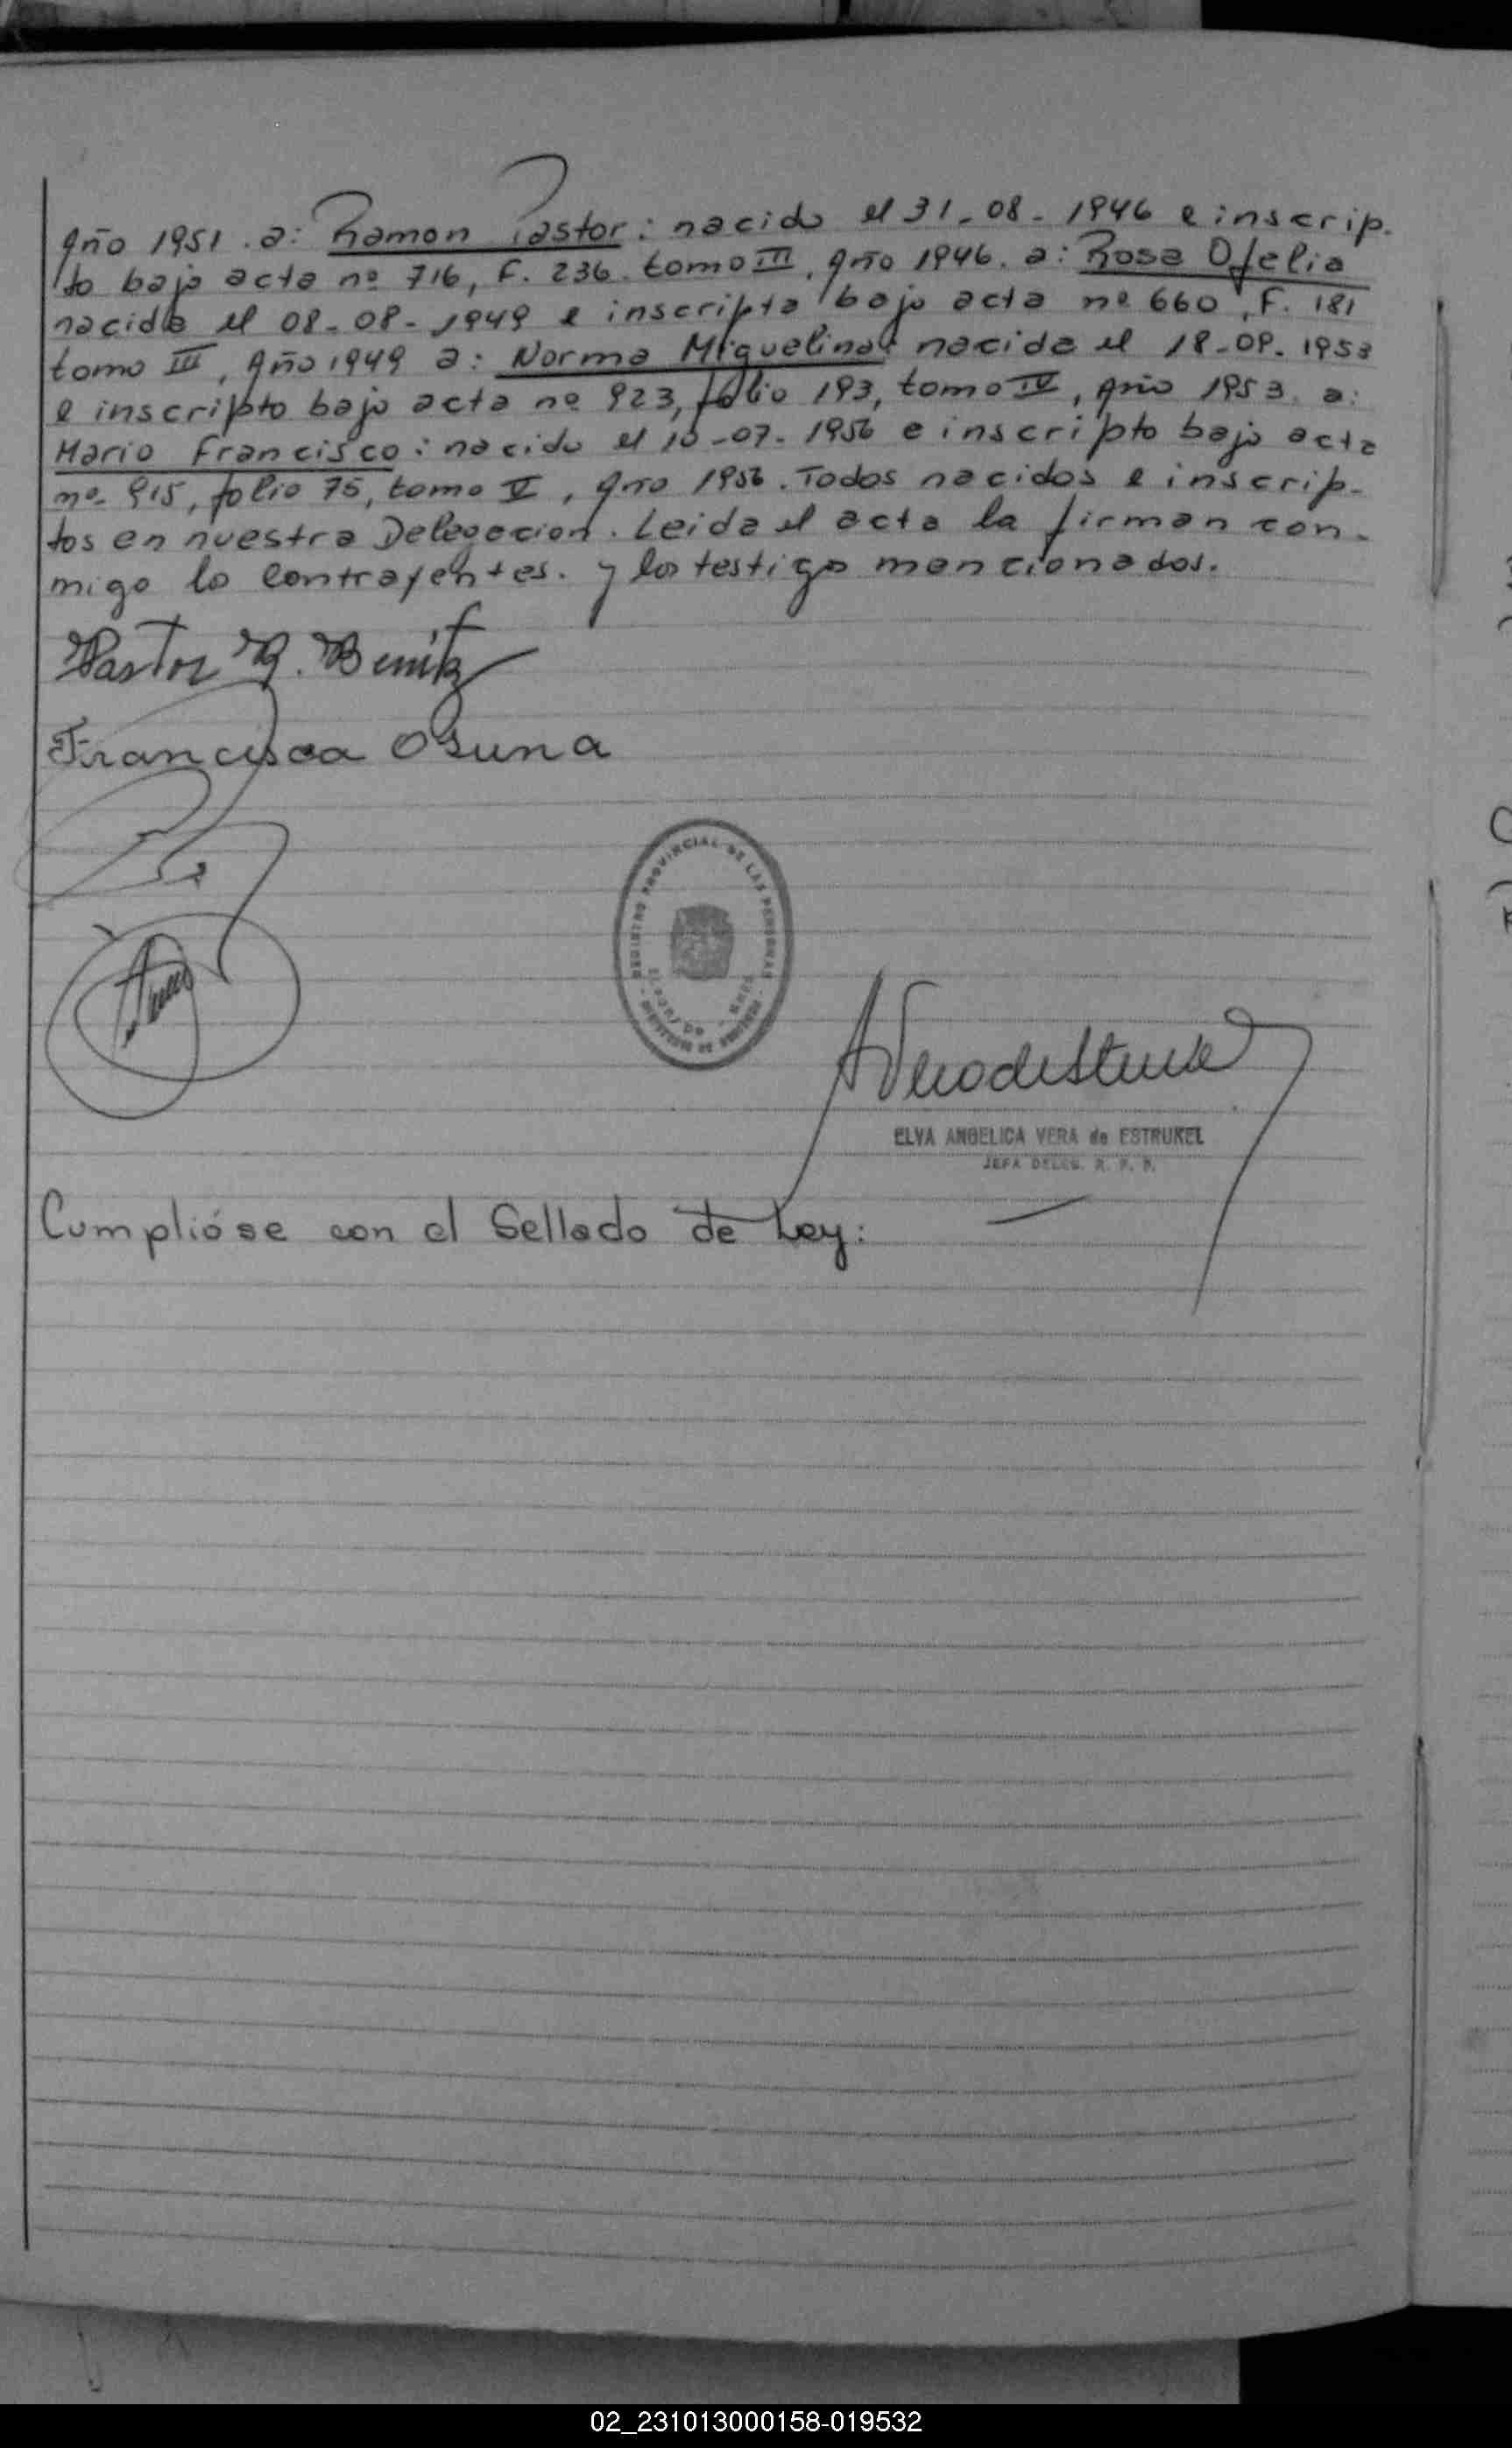 Año 1951. a: Ramon Pastor: nacido el 31-08-1946 e inscrip-
to bajo acta nº 716, F. 236. tomo III, Año 1946. a: Rosa Ofelia
nacida el 08-08-1949 e inscripta bajo acta nº 660, F. 181
tomo III, Año 1949 a: Norma Miguelina: nacida el 18-09-1953
e inscripto bajo acta nº 923, folio 193, tomo IV, Año 1953. a:
Mario Francisco: nacido el 10-07-1956 e inscripto bajo acta
nº 915, folio 75, tomo V, Año 1956. Todos nacidos e inscrip-
tos en nuestra Delegacion. Leida el acta la firman con-
migo lo contrayentes. y los testigo mencionados.
Pastor R. Benitz
Francisca Osuna
REGISTRO PROVINCIAL DE LAS PERSONAS
ELVA ANGELICA VERA de ESTRUKEL
JEFA DELEG. R. P. P.
Cumplióse con el Sellado de Ley:
02_231013000158-019532